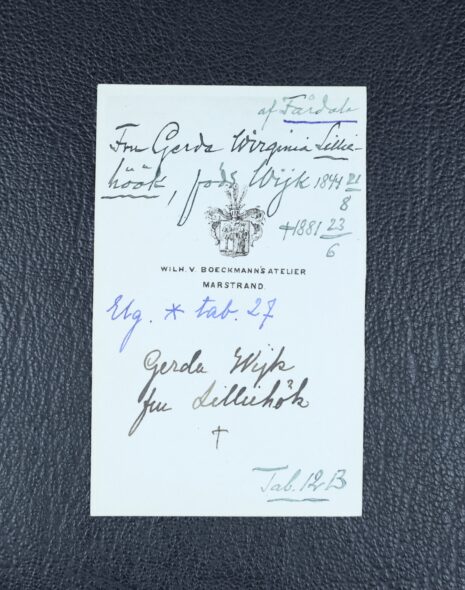 af Fårdala
Fru Gerda Wirginia Lillie-
höök, född Wijk 1841 21/8
†1881 23/6
WILH. V. BOECKMANN'S ATELIER
MARSTRAND.
Elg. * tab. 27
Gerda Wijk
fru Lilliehök
†
Tab. 12 B